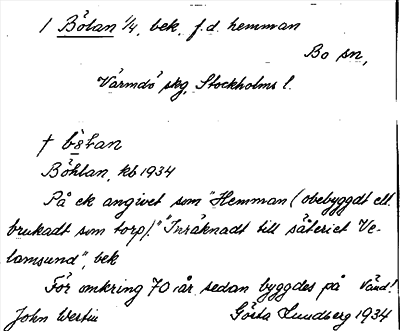 / Bötan 1/4, bek. f.d. hemman
Bo sn,
Värmdö skg, Stockholms l.
† bö̀tan
Böhtan, kb 1934
På ek angivet som "Hemman (obebyggdt ell.
brukadt som torp)." "Inräknadt till säteriet Ve-
lamsund", bek
För omkring 70 år sedan byggdes på Vänd!
John Westin Gösta Lundberg 1934